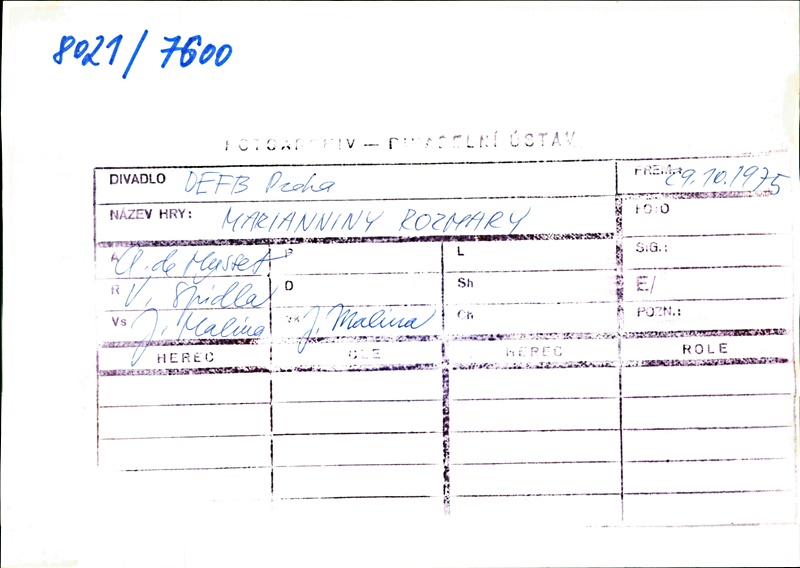 8021/7600
FOTOARCHIV — DIVADELNÍ ÚSTAV
DIVADLO DEFB Praha PREM.: 29.10.1975
NÁZEV HRY: MARIANNINY ROZMARY FOTO
A A. de Mysset P L SIG.:
R V. Špidla D Sh E/
Vs J. Malina Vk J. Malina Ch POZN.:
HEREC ROLE HEREC ROLE